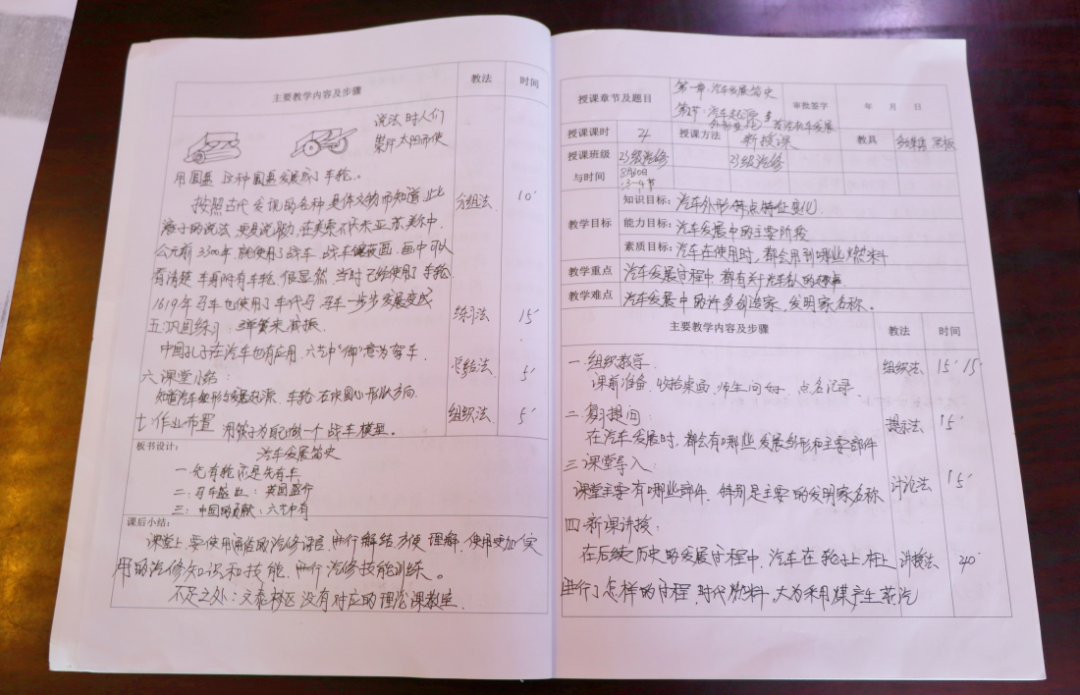 主要教学内容及步骤 教法 时间
说法 时人们
用圆盘 这种圆盘发展成了车轮。
按照古代发现的各种具体文物而知道,止比 分组法 10'
公元前3500年,就使用了战车,战车 画中可以
看清楚 车有车轮 很显然,当时已经使用了车轮
1619年马车也使用了车代马 马车一步步发展变成 练习法 15'
五 巩固练习:
中国孔子在汽车也有应用,六艺中“御”意为驾车. 总结法 5'
六 课堂小结:
车轮
七.作业布置 用筷子为自己做一个战车模型。 组织法 5'
板书设计: 汽车发展简史
一.先有轮而是先有车
二.马车盛世:英国盛行
三:中国的贡献:六艺中有
课后小结:
课堂上,要使用 汽修语言,进行解结方便 理解,使用更加实
用的汽修知识和技能,进行汽修技能训练。
不足之处: 校区没有对应的理论课教室.
授课章节及题目 第一章:汽车发展简史 审批签字 年 月 日
第1节:汽车起源
授课课时 4 授课方法 新授课 教具 黑板
授课班级 23级汽修 23级汽修
与时间 8月30日
3-4节
教学目标 知识目标: 汽车外形特点特征变化.
能力目标: 汽车发展中的主要阶段
素质目标: 汽车在使用时,都会用到哪些燃料
教学重点 汽车发展过程中 都有关于汽车
教学难点 汽车发展中的许多创造家、发明家名称。
主要教学内容及步骤 教法 时间
一.组织教学 组织法 15' 15'
课前准备.收拾桌面.师生问好.点名记录.
二.复习提问: 提示法 15'
在汽车发展时,都会有哪些发展外形和主要部件
三.课堂导入:
课堂主要有哪些部件.特别是主要的发明家名称 讨论法 15'
四.新课讲授:
在后续历史的发展过程中,汽车在轮子上 讲授法 40'
进行了怎样的过程,时代燃料,大为采用煤产生蒸汽